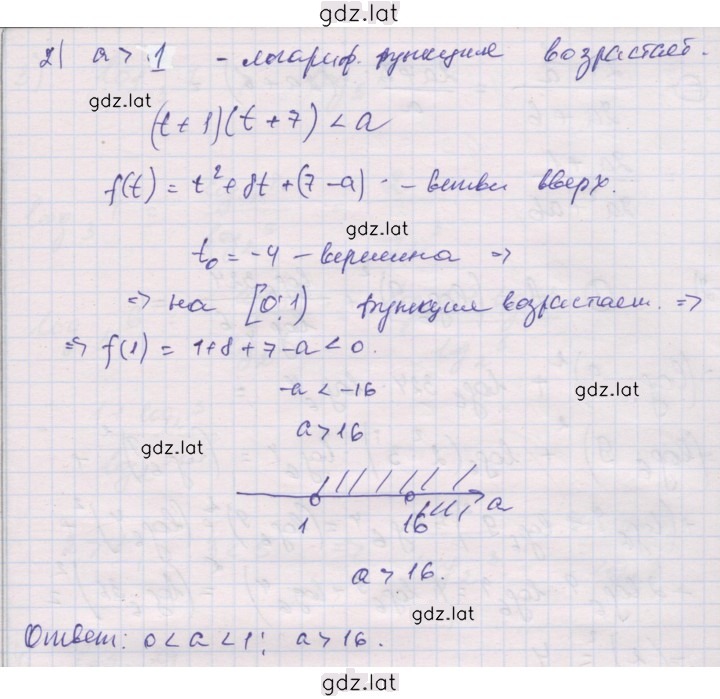 gdz.lat
2) a > 1 - логариф. функция возрастает.
gdz.lat
(t + 1)(t + 7) < a
f(t) = t² + 8t + (7 - a) - ветви вверх.
gdz.lat
t₀ = -4 - вершина =>
=> на [0; 1) функция возрастает. =>
=> f(1) = 1 + 8 + 7 - a < 0.
-a < -16
gdz.lat
a > 16
gdz.lat
1 16 a
a > 16.
gdz.lat
Ответ: 0 < a < 1; a > 16.
gdz.lat